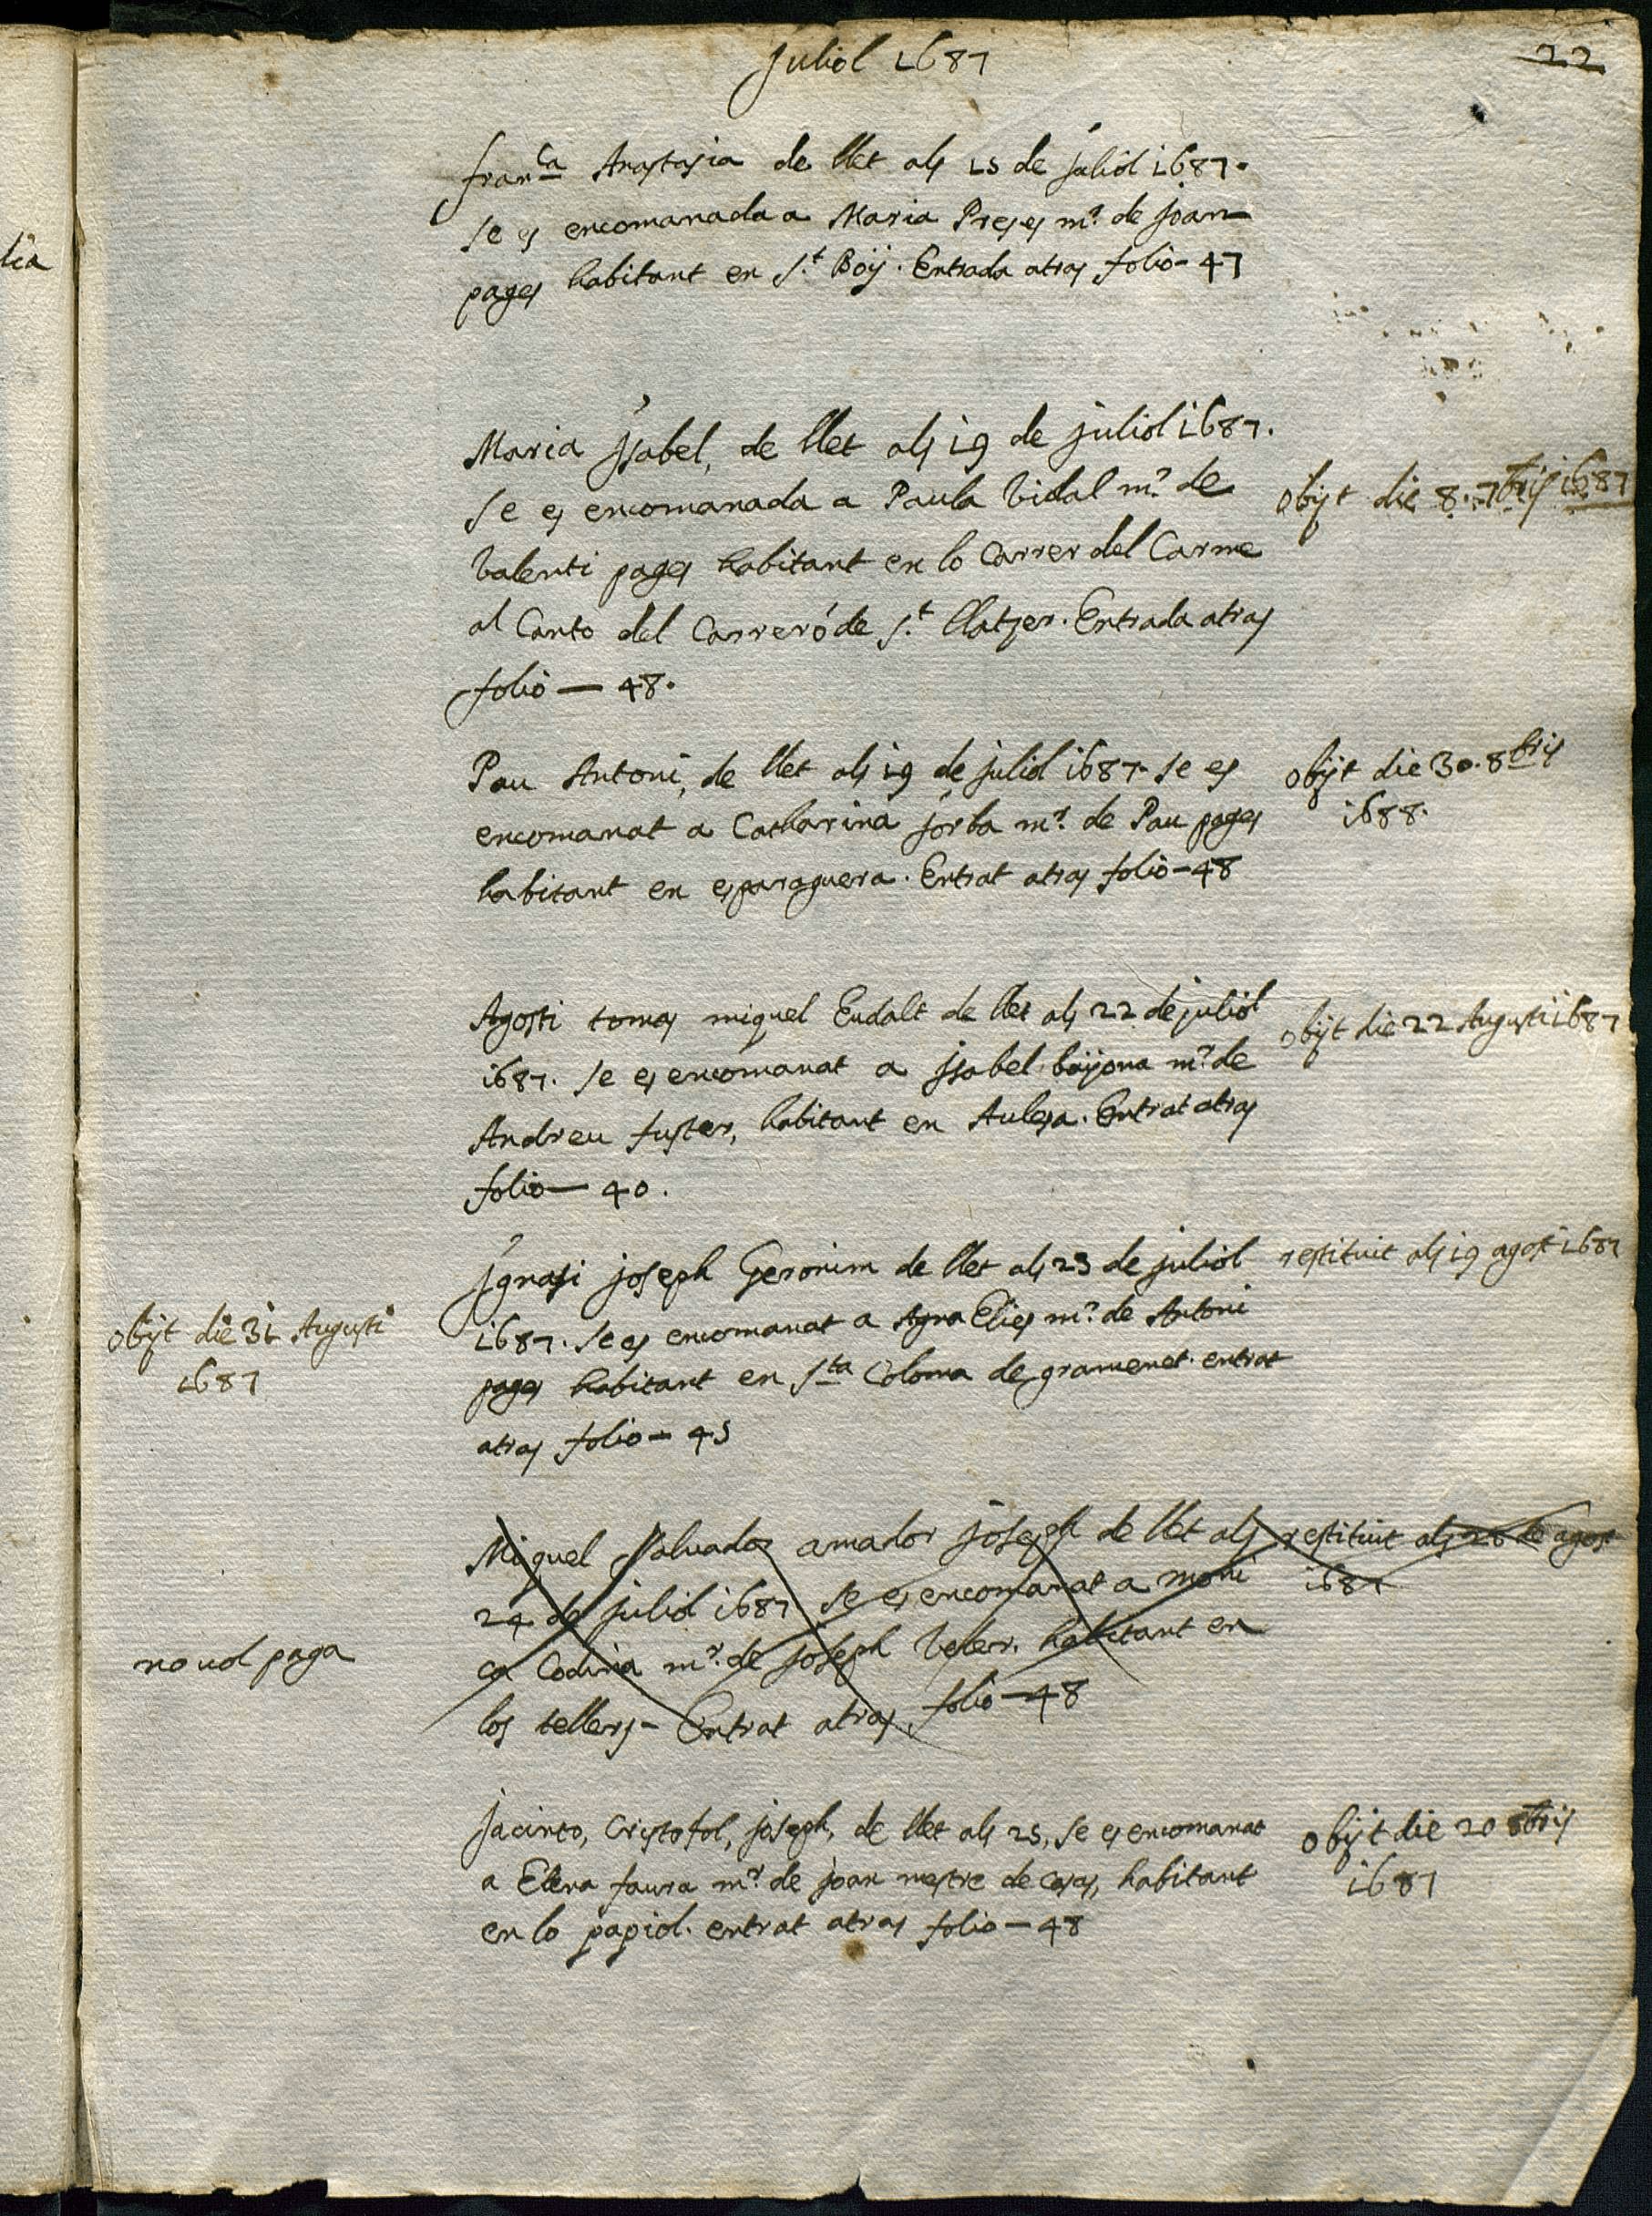 Juliol 1687
22
lia
fran.ca Anastasia de llet als 15 de juliol 1687.
se es encomanada a Maria Preses m.r de Joan
pages habitant en S.t Boy. Entrada atras folio - 47
Maria Isabel, de llet als 19 de juliol 1687.
se es encomanada a Paula Vidal m.r de
Valenti pages habitant en lo Carrer del Carme
al Canto del Carreró de S.t Llatzer. Entrada atras
folio — 48.
obijt die 8. 7bris 1687
Pau Antoni, de llet als 19 de juliol 1687. se es
encomanat a Catharina jorba m.r de Pau pages
habitant en esparaguera. Entrat atras folio - 48
obijt die 30. 8bris
1688.
Agosti tomas miquel Eudalt de llet als 22 de juliol
1687. se es encomanat a Isabel bayona m.r de
Andreu fuster, habitant en Aulesa. Entrat atras
folio — 40.
obijt die 22 Augusti 1687
Ignasi joseph Geronim de llet als 23 de juliol
1687. se es encomanat a Agna Elies m.r de Antoni
pages habitant en S.ta Coloma de gramenet. entrat
atras folio - 45
restituit als 19 agost 1687
obijt die 31 Augusti
1687
Miquel Salvador amador joseph de llet als
24 de juliol 1687 se es encomanat a moni
ca Codina m.r de joseph Veler. habitant en
los tellers - Entrat atras folio - 48
restituit als 26 de agost
1687
no vol paga
Jacinto, Cristofol, joseph, de llet als 25, se es encomanat
a Elena faura m.r de joan mestre de cases, habitant
en lo papiol. entrat atras folio - 48
obijt die 20 8bris
1687